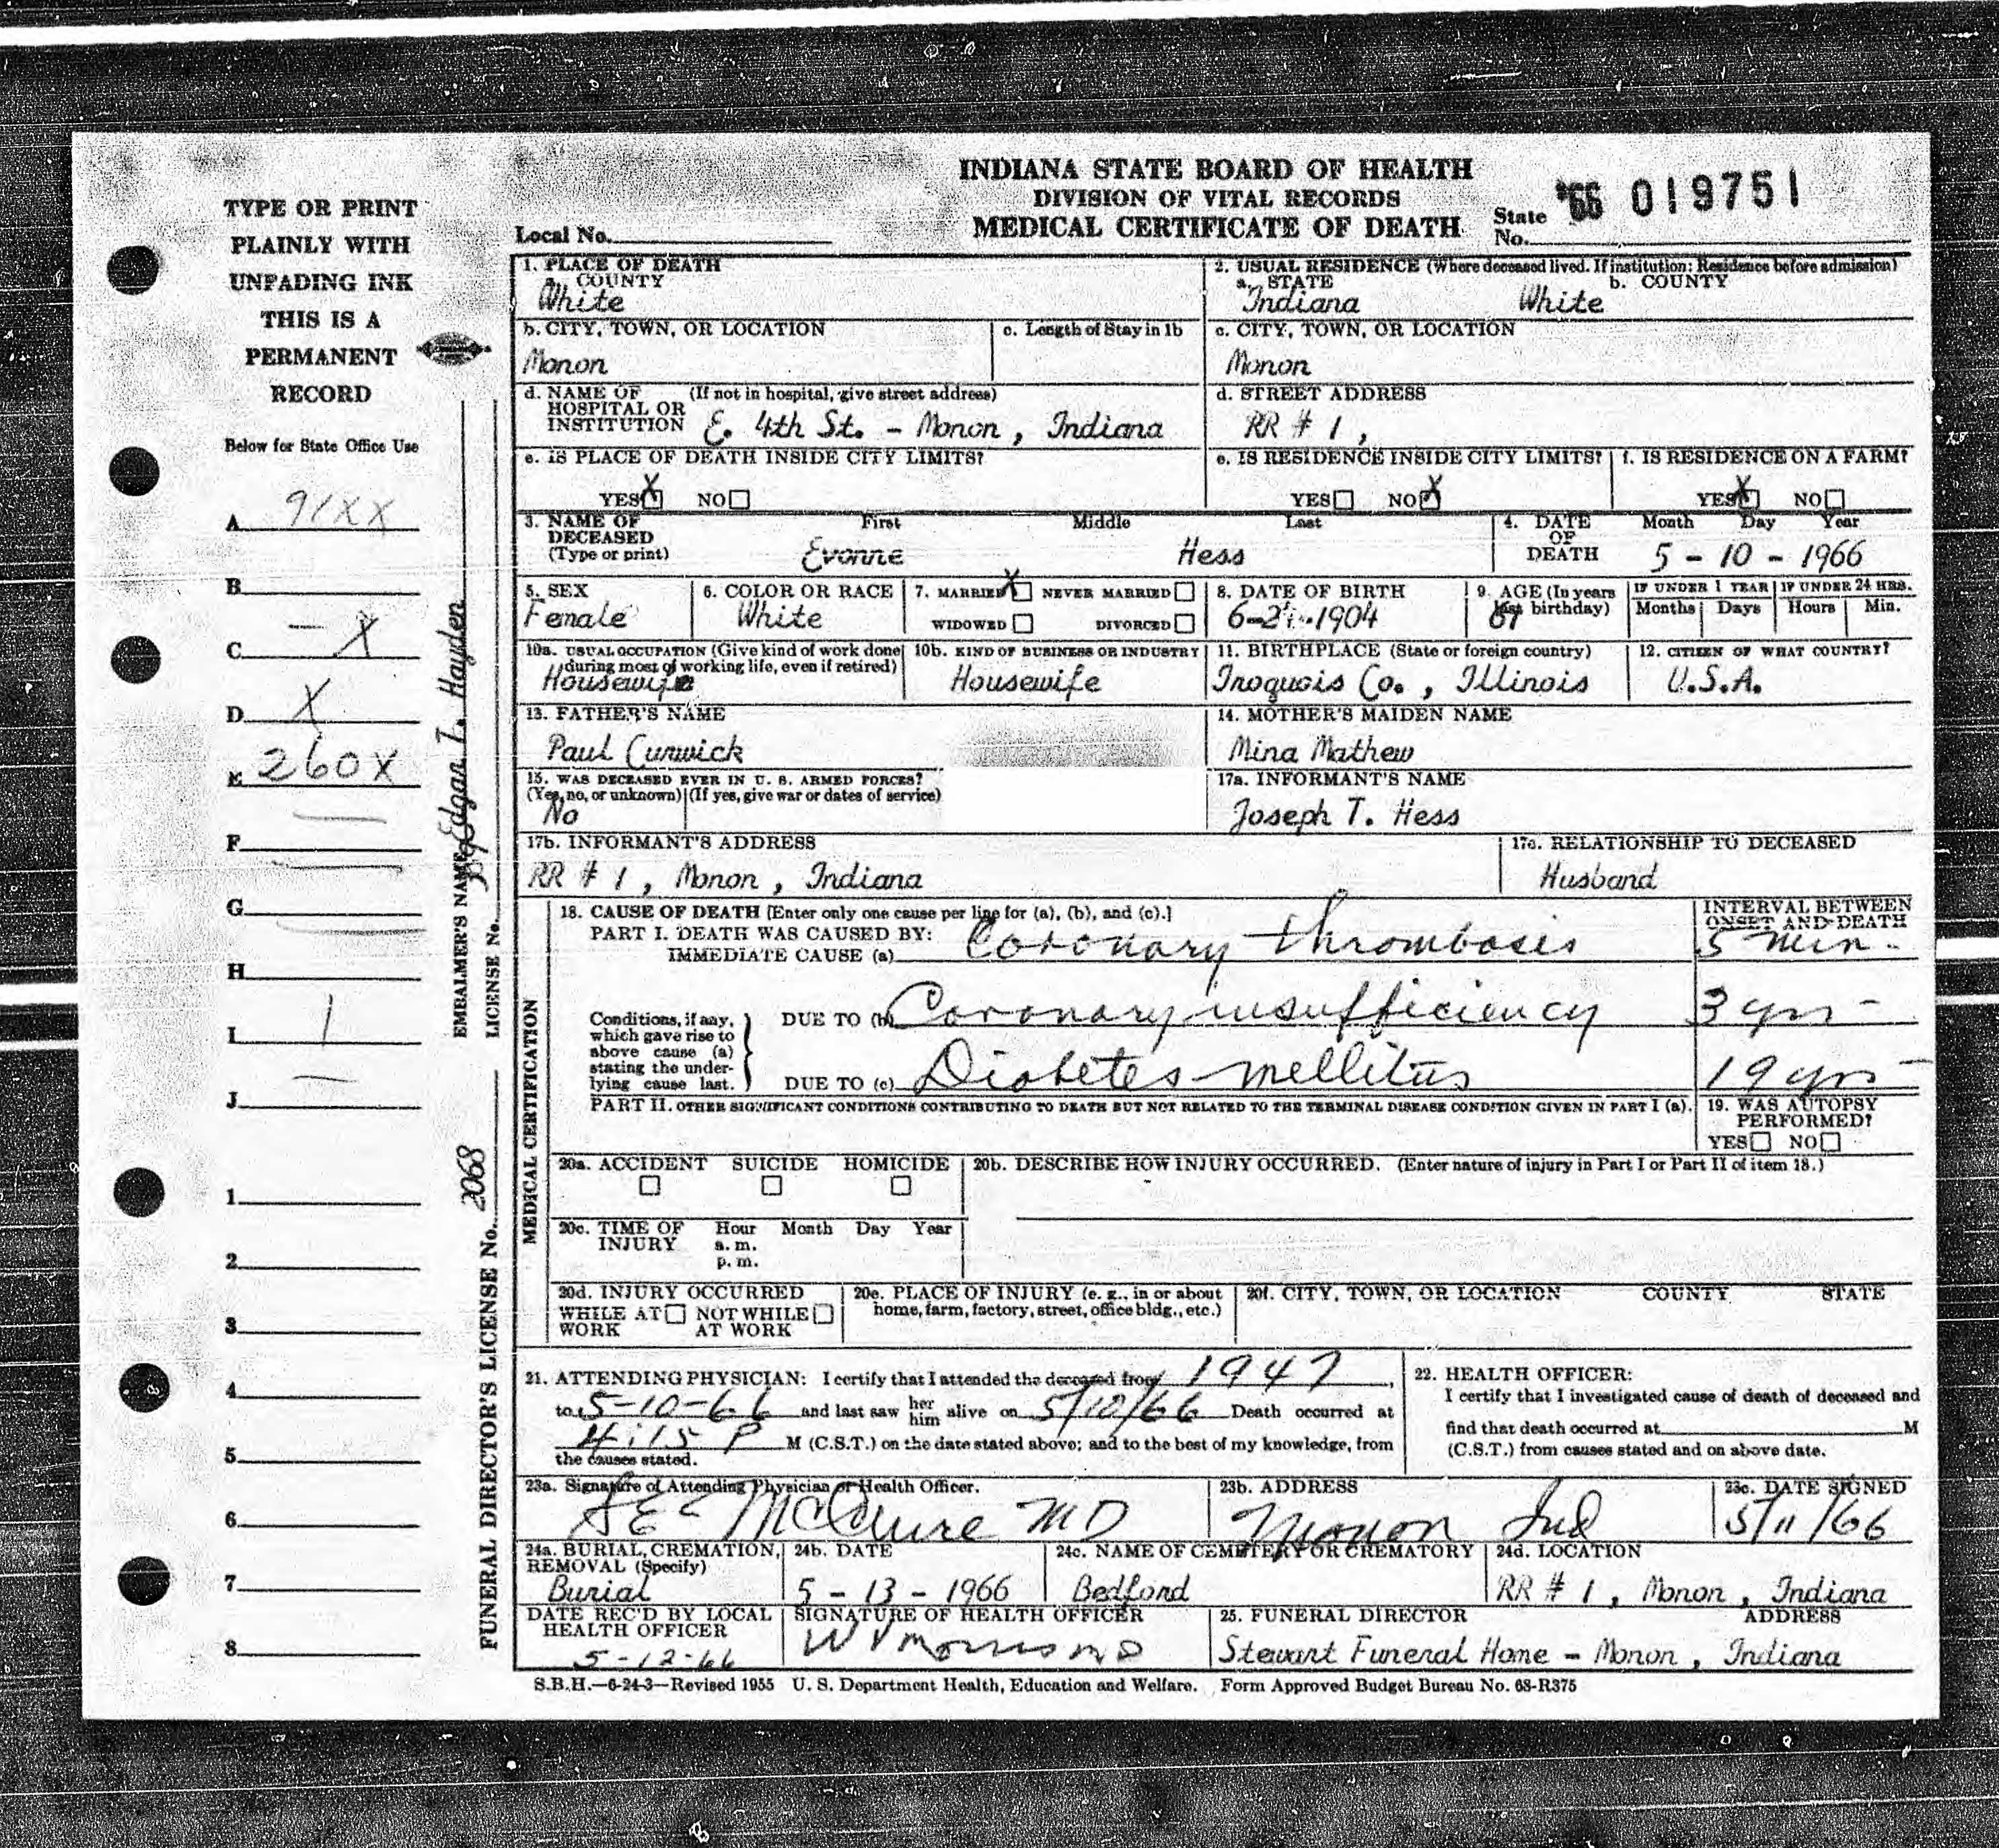 INDIANA STATE BOARD OF HEALTH
DIVISION OF VITAL RECORDS
MEDICAL CERTIFICATE OF DEATH
Local No.
State No. '66 019751
TYPE OR PRINT
PLAINLY WITH
UNFADING INK
THIS IS A
PERMANENT
RECORD
Below for State Office Use
A 91XX
B
C - X
D X
E 260X
F
G
H
I 1
J
1
2
3
4
5
6
7
8
EMBALMER'S NAME Edgar L. Hayden
LICENSE No.
FUNERAL DIRECTOR'S LICENSE No. 2068
1. PLACE OF DEATH
a. COUNTY
White
2. USUAL RESIDENCE (Where deceased lived. If institution: Residence before admission)
a. STATE b. COUNTY
Indiana White
b. CITY, TOWN, OR LOCATION c. Length of Stay in 1b
Monon
c. CITY, TOWN, OR LOCATION
Monon
d. NAME OF (If not in hospital, give street address)
HOSPITAL OR
INSTITUTION E. 4th St. - Monon, Indiana
d. STREET ADDRESS
RR # 1,
e. IS PLACE OF DEATH INSIDE CITY LIMITS?
YES X NO
e. IS RESIDENCE INSIDE CITY LIMITS? f. IS RESIDENCE ON A FARM?
YES NO X YES X NO
3. NAME OF First Middle Last
DECEASED
(Type or print) Evonne Hess
4. DATE Month Day Year
OF
DEATH 5 - 10 - 1966
5. SEX
Female
6. COLOR OR RACE
White
7. MARRIED X NEVER MARRIED
WIDOWED DIVORCED
8. DATE OF BIRTH
1904
9. AGE (In years
last birthday)
61
IF UNDER 1 YEAR IF UNDER 24 HRS.
Months Days Hours Min.
10a. USUAL OCCUPATION (Give kind of work done
during most of working life, even if retired)
Housewife
10b. KIND OF BUSINESS OR INDUSTRY
Housewife
11. BIRTHPLACE (State or foreign country)
Iroquois Co., Illinois
12. CITIZEN OF WHAT COUNTRY?
U.S.A.
13. FATHER'S NAME
Paul Curwick
14. MOTHER'S MAIDEN NAME
Mina Mathew
15. WAS DECEASED EVER IN U. S. ARMED FORCES?
(Yes, no, or unknown) (If yes, give war or dates of service)
No
17a. INFORMANT'S NAME
Joseph T. Hess
17b. INFORMANT'S ADDRESS
RR # 1, Monon, Indiana
17c. RELATIONSHIP TO DECEASED
Husband
MEDICAL CERTIFICATION
18. CAUSE OF DEATH [Enter only one cause per line for (a), (b), and (c).]
PART I. DEATH WAS CAUSED BY:
IMMEDIATE CAUSE (a) Coronary thrombosis
INTERVAL BETWEEN
ONSET AND DEATH
5 min.
Conditions, if any,
which gave rise to
above cause (a)
stating the under-
lying cause last.
DUE TO (b) Coronary insufficiency 3 yrs
DUE TO (c) Diabetes mellitus 19 yrs
PART II. OTHER SIGNIFICANT CONDITIONS CONTRIBUTING TO DEATH BUT NOT RELATED TO THE TERMINAL DISEASE CONDITION GIVEN IN PART I (a).
19. WAS AUTOPSY
PERFORMED?
YES NO
20a. ACCIDENT SUICIDE HOMICIDE
20b. DESCRIBE HOW INJURY OCCURRED. (Enter nature of injury in Part I or Part II of item 18.)
20c. TIME OF Hour Month Day Year
INJURY a. m.
p. m.
20d. INJURY OCCURRED
WHILE AT NOT WHILE
WORK AT WORK
20e. PLACE OF INJURY (e. g., in or about
home, farm, factory, street, office bldg., etc.)
20f. CITY, TOWN, OR LOCATION COUNTY STATE
21. ATTENDING PHYSICIAN: I certify that I attended the deceased from 1947,
to 5-10-66 and last saw her him alive on 5/10/66 Death occurred at
4:15 P M (C.S.T.) on the date stated above; and to the best of my knowledge, from
the causes stated.
22. HEALTH OFFICER:
I certify that I investigated cause of death of deceased and
find that death occurred at M
(C.S.T.) from causes stated and on above date.
23a. Signature of Attending Physician or Health Officer.
McClure MD
23b. ADDRESS
Monon Ind
23c. DATE SIGNED
5/11/66
24a. BURIAL, CREMATION,
REMOVAL (Specify)
Burial
24b. DATE
5 - 13 - 1966
24c. NAME OF CEMETERY OR CREMATORY
Bedford
24d. LOCATION
RR # 1, Monon, Indiana
DATE REC'D BY LOCAL
HEALTH OFFICER
5-12-66
SIGNATURE OF HEALTH OFFICER
W V Morris MD
25. FUNERAL DIRECTOR ADDRESS
Stewart Funeral Home - Monon, Indiana
S.B.H.—6-24-3—Revised 1955 U. S. Department Health, Education and Welfare. Form Approved Budget Bureau No. 68-R375